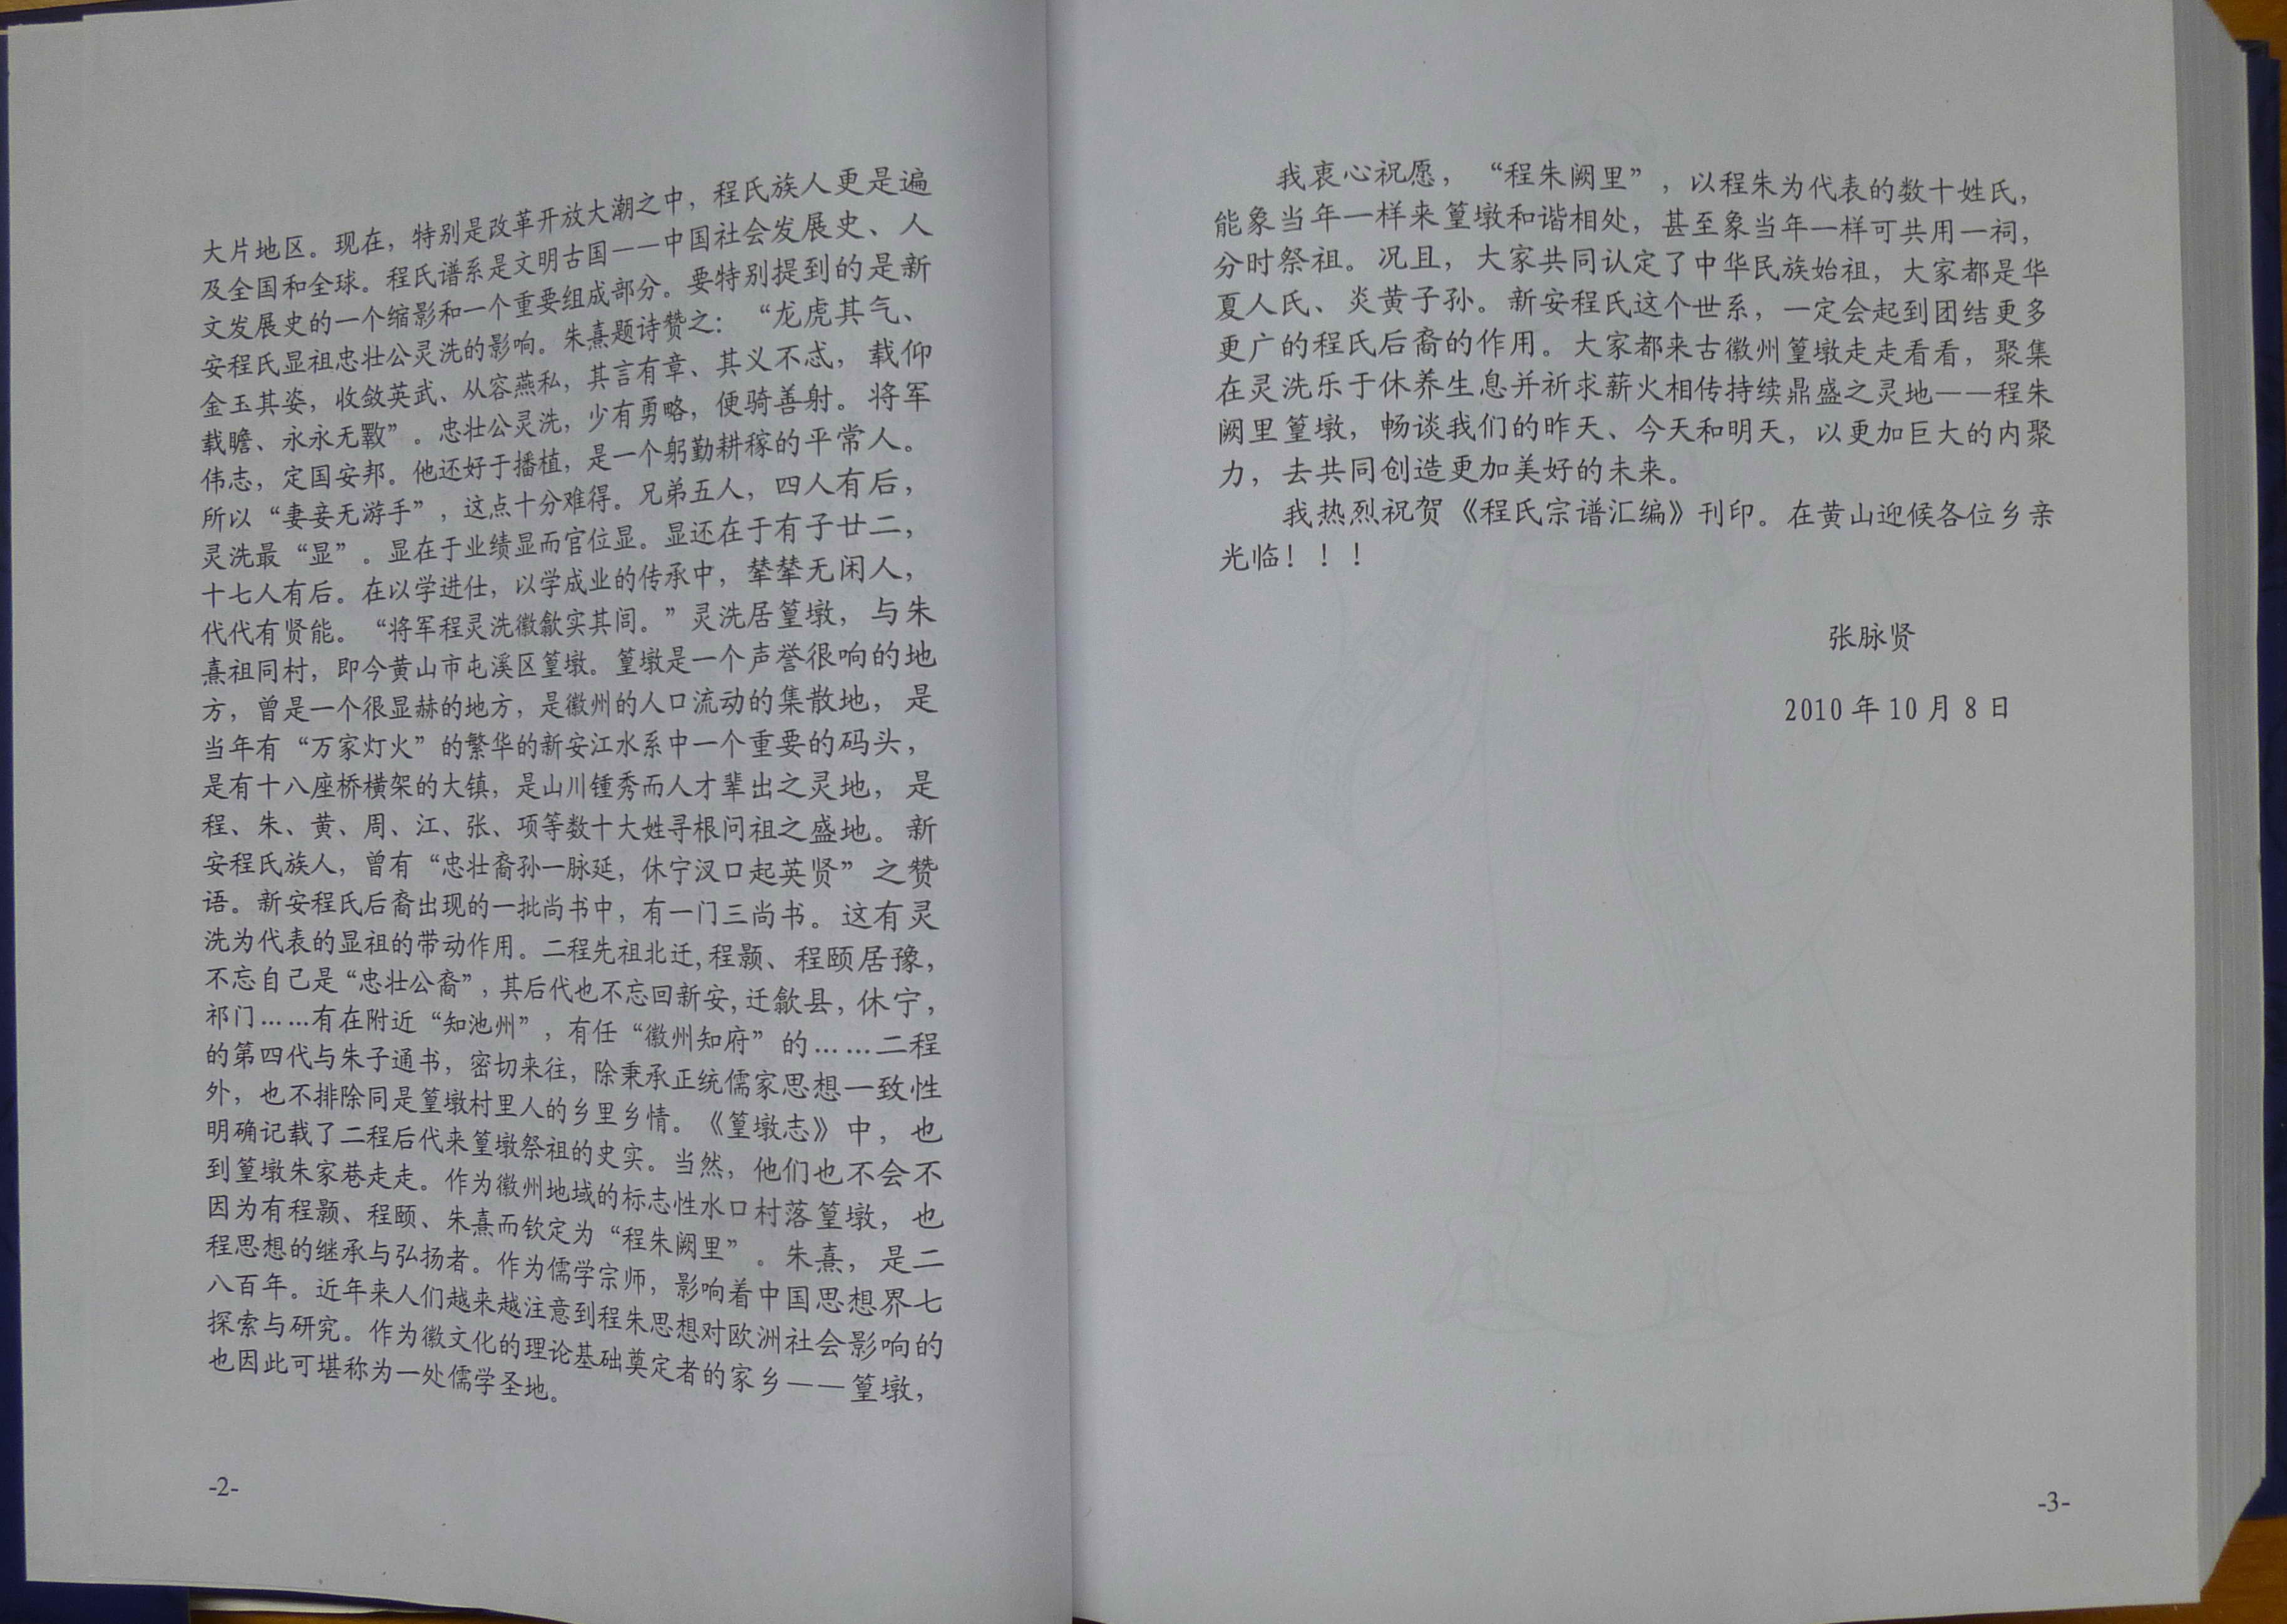 大片地区。现在，特别是改革开放大潮之中，程氏族人更是遍
及全国和全球。程氏谱系是文明古国——中国社会发展史、人
文发展史的一个缩影和一个重要组成部分。要特别提到的是新
安程氏显祖忠壮公灵洗的影响。朱熹题诗赞之：“龙虎其气、
金玉其姿，收敛英武、从容燕私，其言有章、其义不忒，载仰
载瞻、永永无斁”。忠壮公灵洗，少有勇略，便骑善射。将军
伟志，定国安邦。他还好于播植，是一个躬勤耕稼的平常人。
所以“妻妾无游手”，这点十分难得。兄弟五人，四人有后，
灵洗最“显”。显在于业绩显而官位显。显还在于有子廿二，
十七人有后。在以学进仕，以学成业的传承中，辈辈无闲人，
代代有贤能。“将军程灵洗徽歙实其闾。”灵洗居篁墩，与朱
熹祖同村，即今黄山市屯溪区篁墩。篁墩是一个声誉很响的地
方，曾是一个很显赫的地方，是徽州的人口流动的集散地，是
当年有“万家灯火”的繁华的新安江水系中一个重要的码头，
是有十八座桥横架的大镇，是山川锺秀而人才辈出之灵地，是
程、朱、黄、周、江、张、项等数十大姓寻根问祖之盛地。新
安程氏族人，曾有“忠壮裔孙一脉延，休宁汊口起英贤”之赞
语。新安程氏后裔出现的一批尚书中，有一门三尚书。这有灵
洗为代表的显祖的带动作用。二程先祖北迁，程颢、程颐居豫，
不忘自己是“忠壮公裔”，其后代也不忘回新安，迁歙县，休宁，
祁门……有在附近“知池州”，有任“徽州知府”的……二程
的第四代与朱子通书，密切来往，除秉承正统儒家思想一致性
外，也不排除同是篁墩村里人的乡里乡情。《篁墩志》中，也
明确记载了二程后代来篁墩祭祖的史实。当然，他们也不会不
到篁墩朱家巷走走。作为徽州地域的标志性水口村落篁墩，也
因为有程颢、程颐、朱熹而钦定为“程朱阙里”。朱熹，是二
程思想的继承与弘扬者。作为儒学宗师，影响着中国思想界七
八百年。近年来人们越来越注意到程朱思想对欧洲社会影响的
探索与研究。作为徽文化的理论基础奠定者的家乡——篁墩，
也因此可堪称为一处儒学圣地。
-2-
我衷心祝愿，“程朱阙里”，以程朱为代表的数十姓氏，
能象当年一样来篁墩和谐相处，甚至象当年一样可共用一祠，
分时祭祖。况且，大家共同认定了中华民族始祖，大家都是华
夏人氏、炎黄子孙。新安程氏这个世系，一定会起到团结更多
更广的程氏后裔的作用。大家都来古徽州篁墩走走看看，聚集
在灵洗乐于休养生息并祈求薪火相传持续鼎盛之灵地——程朱
阙里篁墩，畅谈我们的昨天、今天和明天，以更加巨大的内聚
力，去共同创造更加美好的未来。
我热烈祝贺《程氏宗谱汇编》刊印。在黄山迎候各位乡亲
光临！！！
张脉贤
2010 年 10 月 8 日
-3-